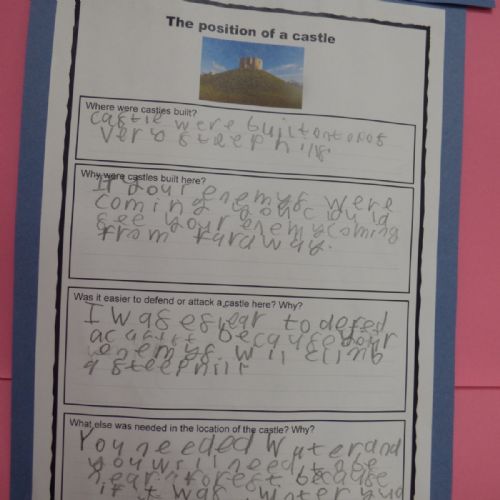 The position of a castle
Where were castles built?
castle were built on
very steep hills.
Why were castles built here?
If your enemys were
coming you could
see your enemy coming
from faraway.
Was it easier to defend or attack a castle here? Why?
I was esiear to defed
a casitl because your
enemys will climb
a steep hill
What else was needed in the location of the castle? Why?
You needed Water and
you will need to be
near forest
if it was